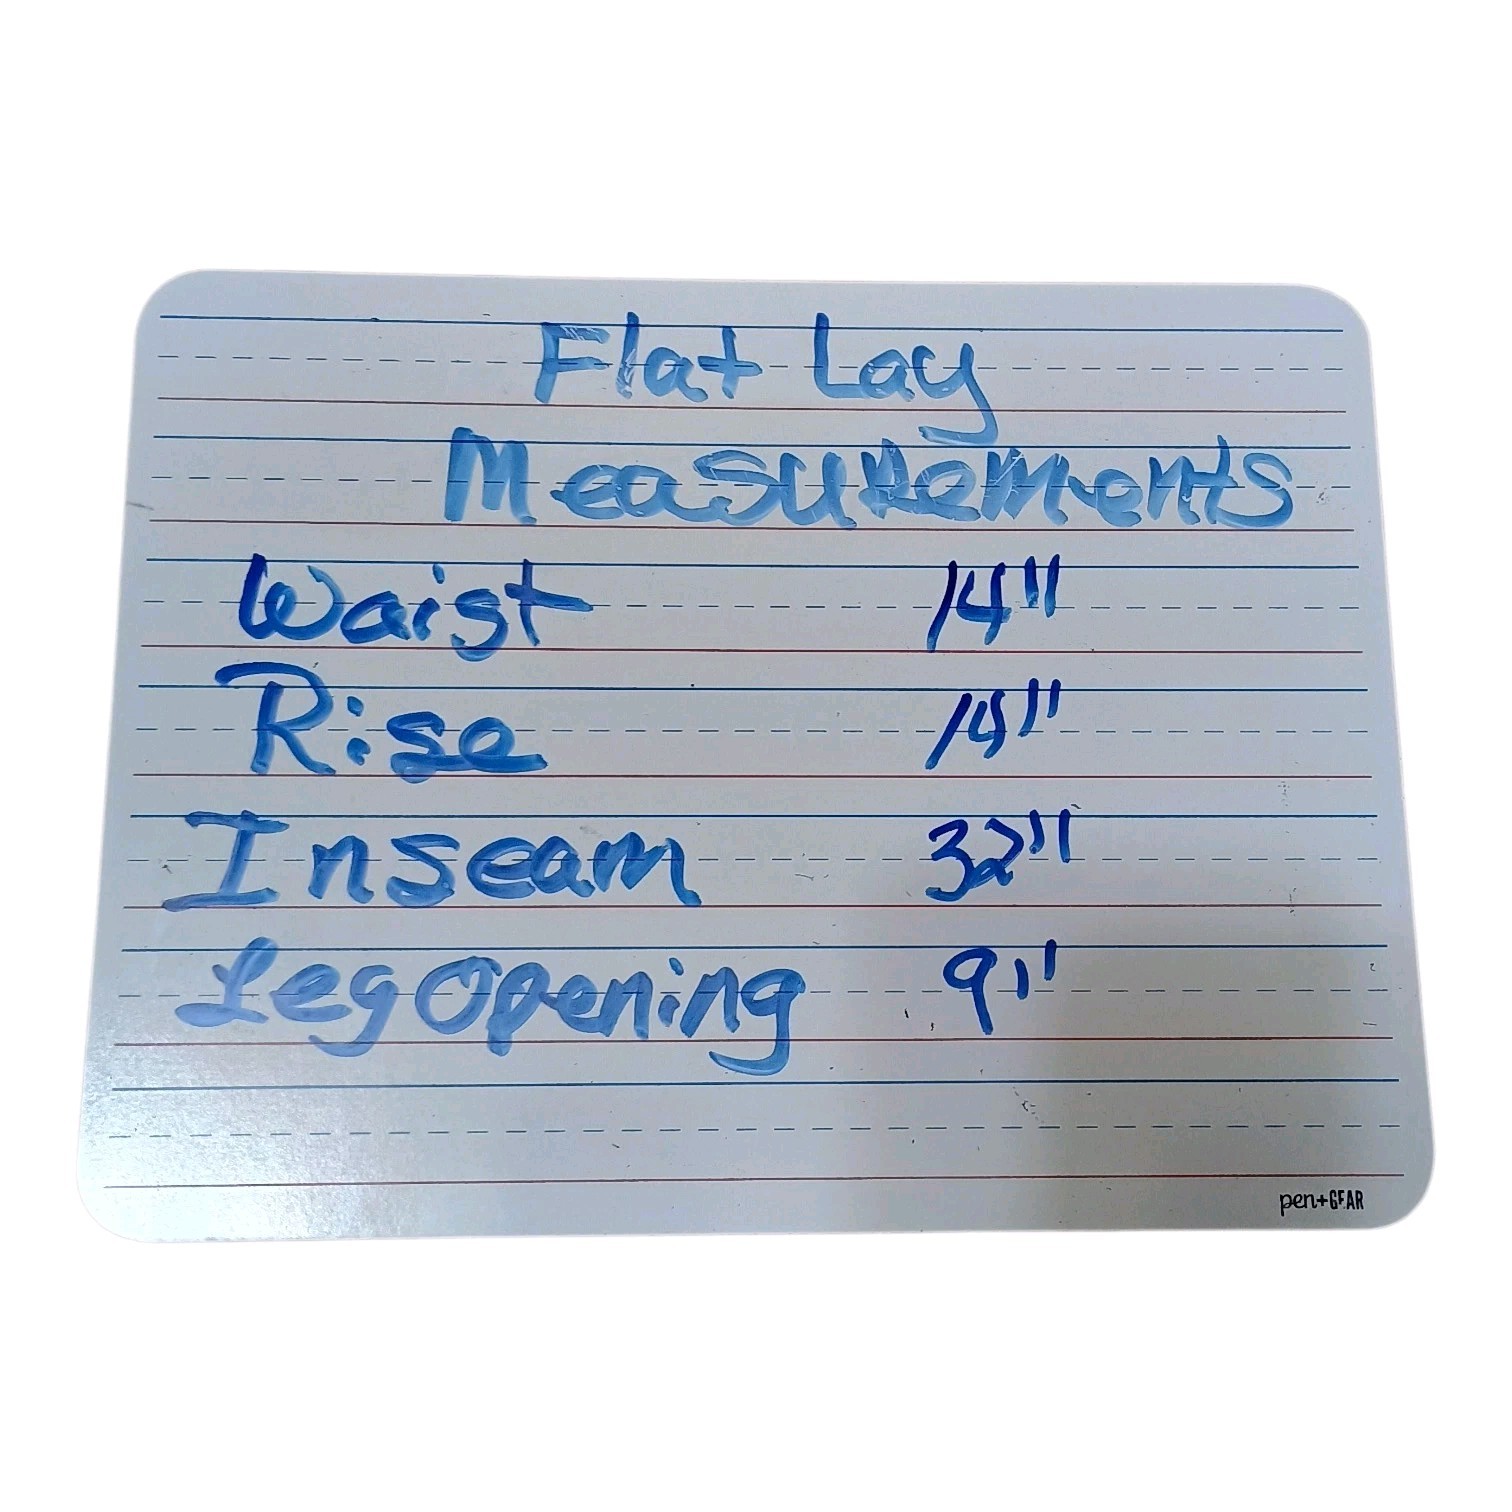 Flat Lay
Measurements
Waist 14"
Rise 14"
Inseam 32"
Leg Opening 9"
pen+GEAR